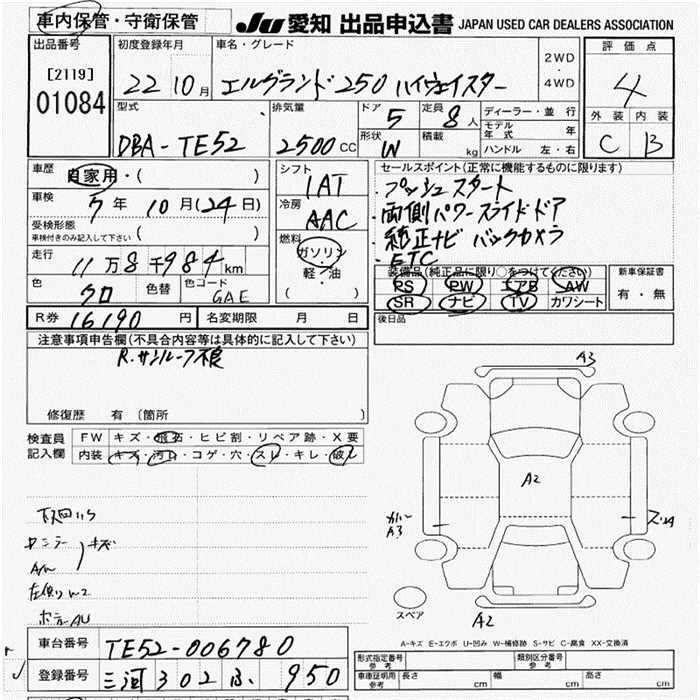 車内保管・守衛保管 JU 愛知 出品申込書 JAPAN USED CAR DEALERS ASSOCIATION
出品番号 [2119] 01084
初度登録年月 22 10月
車名・グレード エルグランド 250 ハイウェイスター
2WD・4WD
評価点 4
外装 内装
C B
型式 DBA-TE52
排気量 2500 CC
ドア 5 定員 8人
形状 W 積載 kg
ディーラー・並行
モデル年式 年
ハンドル 左・右
車歴 自家用・( )
車検 7年 10月(24日)
受検形態 ( )
車検付きのみ記入して下さい
走行 11万8千984km
色 クロ 色替 色コード GAE
シフト IAT
冷房 AAC
燃料 ガソリン・軽油
( )
セールスポイント(正常に機能するものに限ります)
・プッシュスタート
・両側パワースライドドア
・純正ナビ バックカメラ
・ETC
装備品(純正品に限り○をつけてください)
PS PW エアB AW
SR ナビ TV カワシート
新車保証書
有・無
後日品
R券 16190円 名変期限 月 日
注意事項申告欄(不具合内容等は具体的に記入して下さい)
R.サンルーフ不良
修復歴 有 (箇所 )
検査員記入欄
FW キズ・飛石・ヒビ割・リペア跡・X要
内装 キズ・汚れ・コゲ・穴・スレ・キレ・破レ
キズ
A/W
A3
A2
A3
スペア
A2
A-キズ E-エクボ U-凹み W-補修跡 S-サビ C-腐食 XX-交換済
車台番号 TE52-006780
登録番号 三河 302 ふ 950
形式指定番号 参考
類別区分番号 参考
車庫証明用 参考 長さ cm 幅 cm 高さ cm